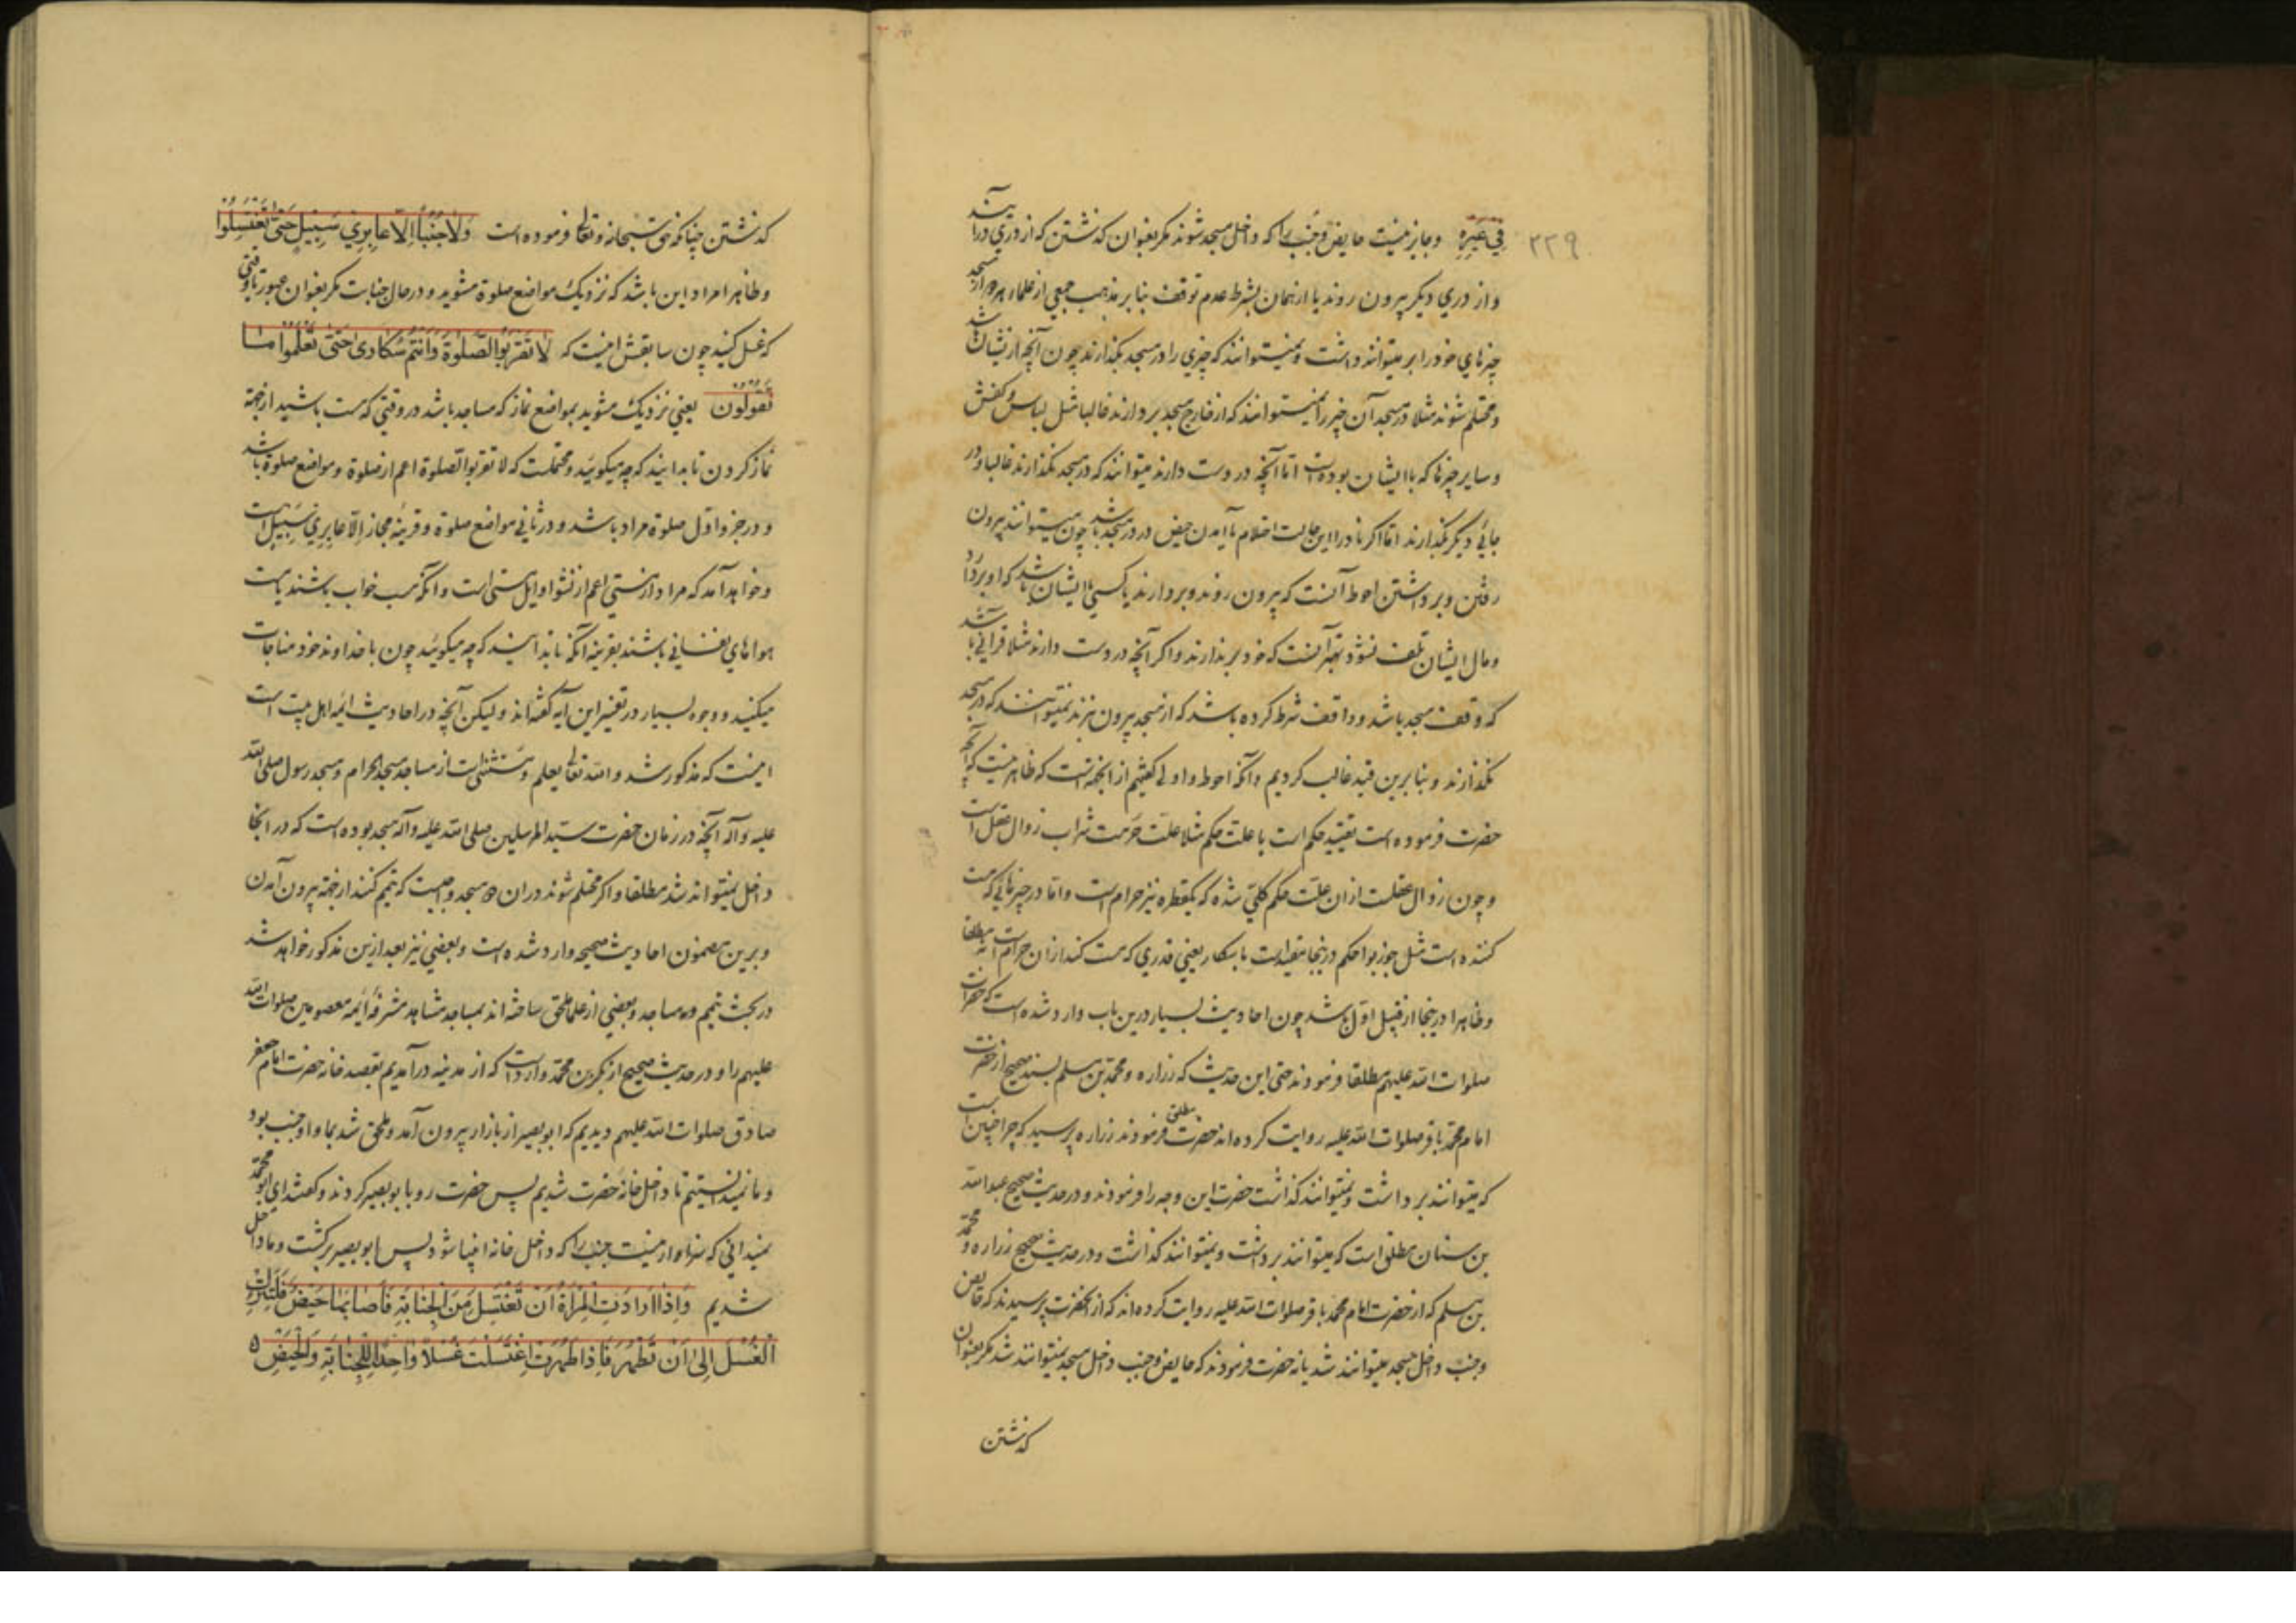 ۲۲۹
فِي غَيْرِهِ وجايز نيست حايض وجنب را كه داخل مسجد شوند مكر بعنوان كذشتن كه از دري درآيند
واز دري ديكر بيرون روند يا از همان بشرط عدم توقف بنا بر مذهب جمعي از علماء
چيزهاي خود را بر ميتوانند داشت ونميتوانند كه چيزي را در مسجد بكذارند چون آنچه از نشان
ومحتلم شوند مثلا در مسجد آن چيز را نميتوانند كه از خارج مسجد بردارند غالبا مثل لباس وكفش
وساير چيزها كه با ايشان بوده است اما آنچه در دست دارند ميتوانند كه در مسجد نكذارند غالبا ودر
جائي ديكر بكذارند اما اكر نادرا اين حالت احتلام يا آمدن حيض در در مسجد باشد چون ميتوانند بيرون
رفتن وبرداشتن احوط آنست كه بيرون روند وبردارند يا كسي با ايشان باشد كه او بردارد
ومال ايشان تلف نشود بهتر آنست كه خود بر ندارند واكر آنچه در دست دارند مثلا قرآني باشد
كه وقف مسجد باشد وواقف شرط كرده باشد كه از مسجد بيرون نبرند نميتوانند كه در مسجد
نكذارند وبنا برين قيد غالب كرديم وآنكه احوط واولي كفتيم از انجهة است كه ظاهر نيست كه آنچه
حضرت فرموده است تقييد حكم است يا علت حكم مثلا علت حرمت شراب زوال عقل است
وچون زوال عقلست از ان علت حكم كلي شده كه يكقطره نيز حرام است واما در چيزهائي كه مست
كننده است مثل جوز بوا حكم در ينجا مقيد است باسكار يعني قدري كه مست كند از ان حرام است نه مطلقا
وظاهرا در ينجا از قبيل اول باشد چون احاديث بسيار درين باب وارد شده است كه حضرات
صلوات الله عليهم مطلقا فرمودند حتي اين حديث كه زراره ومحمد بن مسلم بسند صحيح از حضرت
امام محمد باقر صلوات الله عليه روايت كرده اند حضرت مطلق فرمودند زراره پرسيد كه چرا چنين است
كه ميتوانند برداشت ونميتوانند كذاشت حضرت اين وجه را فرمودند ودر حديث صحيح عبد الله
بن سنان مطلق است كه ميتوانند برداشت ونميتوانند كذاشت ودر حديث صحيح زراره ومحمد
بن مسلم كه از حضرت امام محمد باقر صلوات الله عليه روايت كرده اند كه از آنحضرت پرسيدند كه حايض
وجنب داخل مسجد ميتوانند شد يا نه حضرت فرمودند كه حايض وجنب داخل مسجد نميتوانند شد مكر بعنوان
كذشتن
كذشتن چنانكه حق سبحانه وتعالي فرموده است وَلَا جُنُبًا اِلَّا عَابِرِي سَبِيلٍ حَتَّى تَغْتَسِلُوا
وظاهرا مراد اين باشد كه نزديك مواضع صلوة مشويد ودر حال جنابت مكر بعنوان عبور تا وقتي
كه غسل كنيد چون سابقش اينست كه لَا تَقْرَبُوا الصَّلٰوةَ وَاَنْتُمْ سُكَارٰى حَتّٰى تَعْلَمُوا مَا
تَقُولُونَ يعني نزديك مشويد بمواضع نماز كه مساجد باشد در وقتي كه مست باشيد از جهة
نماز كردن تا بدانيد كه چه ميكوئيد ومحتملست كه لا تقربوا الصلوة اعم از صلوة ومواضع صلوة باشد
ودر جزو اول صلوة مراد باشد ودر ثاني مواضع صلوة وقرينه مجاز اِلَّا عَابِرِي سَبِيلٍ است
وخواهد آمد كه مراد از مستي اعم از نشو اوايل مستي است وآنكه مست خواب باشند يا مست
هواهاي نفساني باشند بقرينه آنكه تا بدانيد كه چه ميكوئيد چون با خداوند خود مناجات
ميكنيد ووجوه بسيار در تفسير اين آيه كفته اند وليكن آنچه در احاديث ائمه اهل بيت است
اينست كه مذكور شد والله تعالي يعلم ومستثني است از مساجد مسجد الحرام ومسجد رسول صلي الله
عليه وآله آنچه در زمان حضرت سيد المرسلين صلي الله عليه وآله مسجد بوده است كه در انجا
داخل نميتواند شد مطلقا واكر محتلم شوند در ان دو مسجد واجبست كه تيمم كنند از جهة بيرون آمدن
وبرين مضمون احاديث صحيحه وارد شده است وبعضي نيز بعد ازين مذكور خواهد شد
در بحث تيمم ودر مساجد وبعضي از علما ملحق ساخته اند بمساجد مشاهد مشرفه ائمه معصومين صلوات الله
عليهم را ودر حديث صحيح از بكر بن محمد وارد است كه از مدينه در آمديم بقصد خانه حضرت امام جعفر
صادق صلوات الله عليهم ديديم كه ابو بصير از بازار بيرون آمد وملحق شد بما واو جنب بود
وما نميدانستيم تا داخل خانه حضرت شديم پس حضرت رو بابو بصير كردند وكفتند اي ابو محمد
نميداني كه سزاوار نيست جنب را كه داخل خانه انبيا شود پس ابو بصير بركشت وما داخل
شديم وَاِذَا اَرَادَتِ الْمَرْاَةُ اَنْ تَغْتَسِلَ مِنَ الْجَنَابَةِ فَاَصَابَهَا حَيْضٌ فَلْتَتْرُكِ
الْغُسْلَ اِلٰى اَنْ تَطْهُرَ فَاِذَا طَهُرَتِ اغْتَسَلَتْ غُسْلًا وَاحِدًا لِلْجَنَابَةِ وَالْحَيْضِ